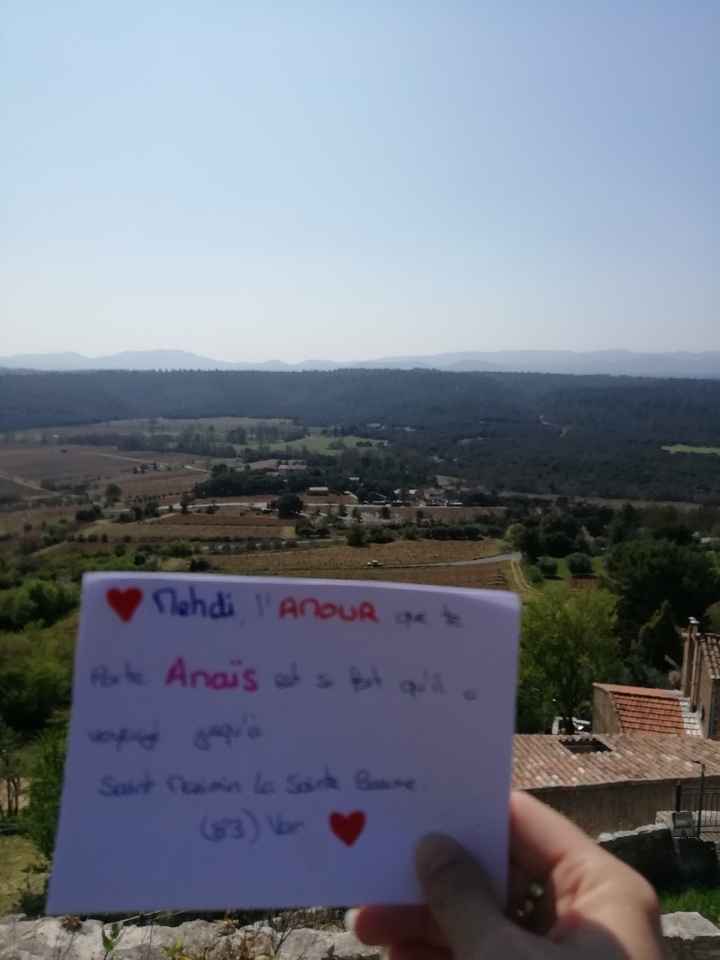 Mehdi, l'AMOUR que te
Porte Anaïs est si fort qu'il a
voyagé jusqu'à
Saint Maximin La Sainte Baume.
(83) Var